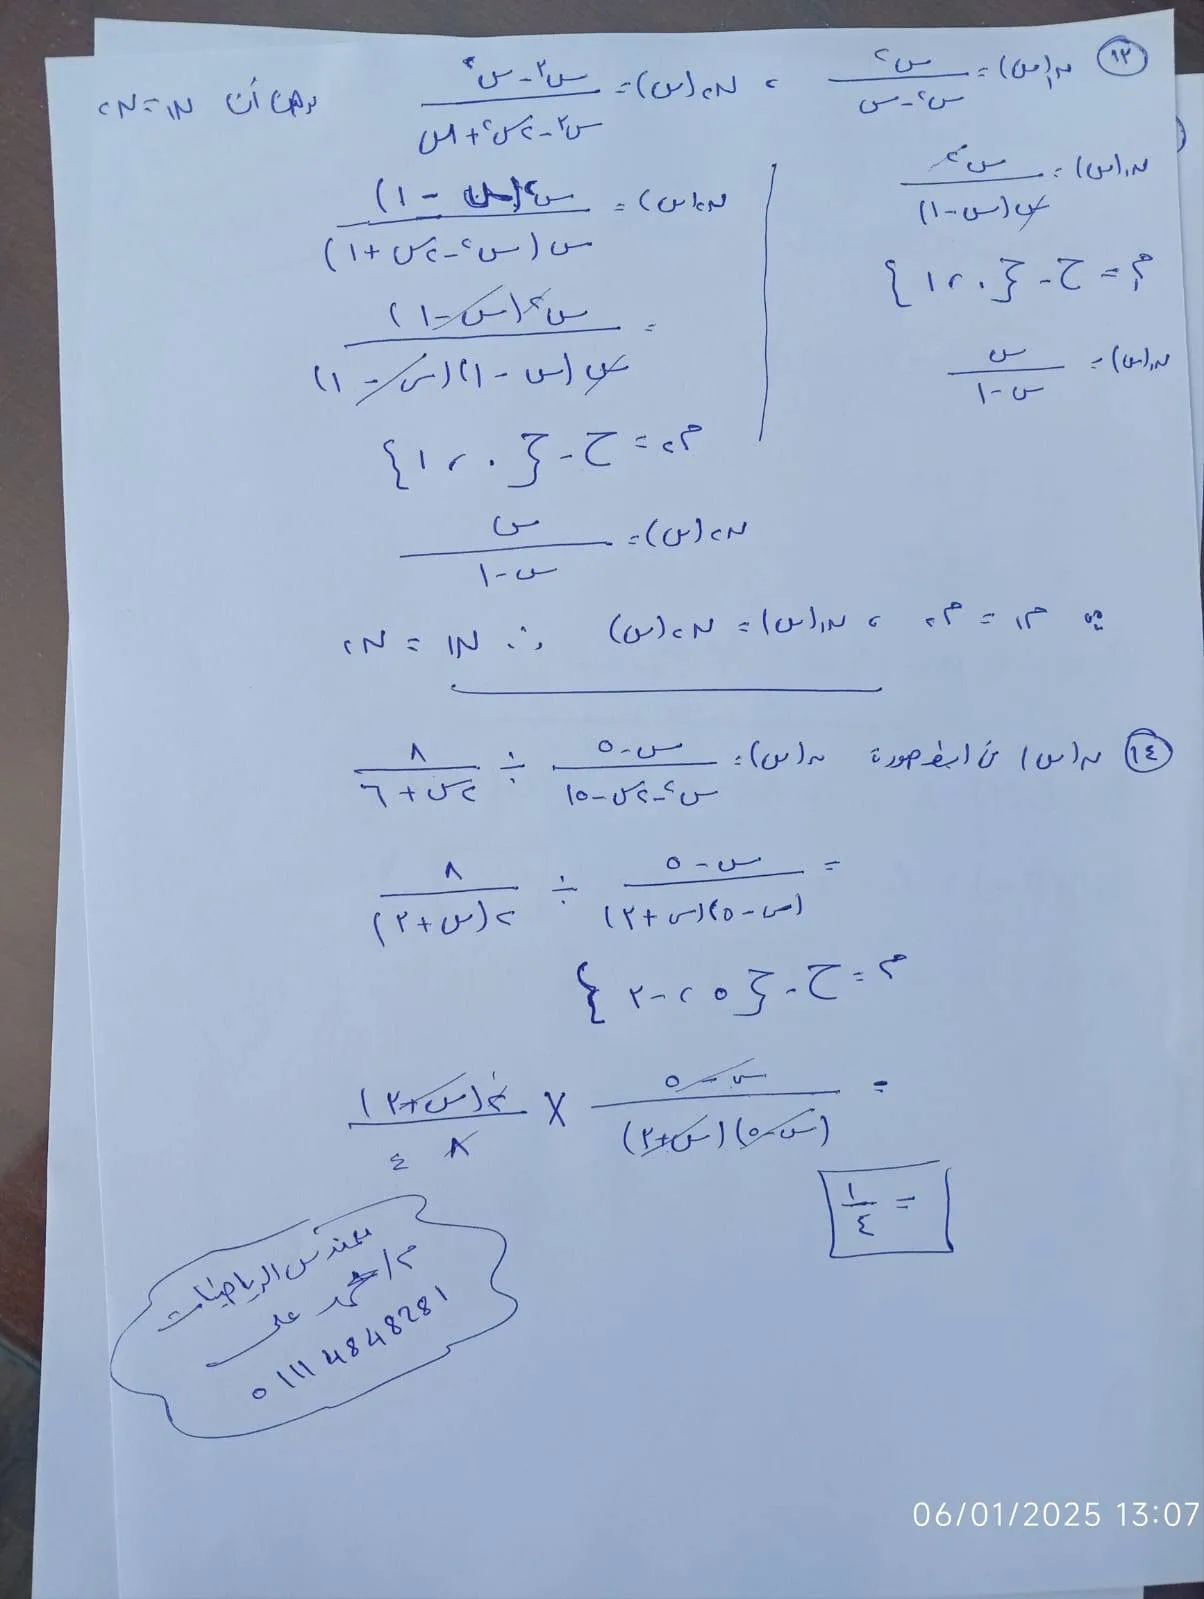 ١٣ ن١(س) = س٢ / س٢ - س ، ن٢(س) = س٣ - س٢ / س٣ - ٢س٢ + س برهن أن ن١ = ن٢
ن١(س) = س٢ / س(س - ١)
م١ = ح - {٠ ، ١}
ن١(س) = س / س - ١
ن٢(س) = س٢(س - ١) / س(س٢ - ٢س + ١)
= س٢(س - ١) / س(س - ١)(س - ١)
م٢ = ح - {٠ ، ١}
ن٢(س) = س / س - ١
∵ م١ = م٢ ، ن١(س) = ن٢(س) ∴ ن١ = ن٢
١٤ ن(س) في أبسط صورة ن(س) = س - ٥ / س٢ - ٢س - ١٥ ÷ ٨ / ٢س + ٦
= س - ٥ / (س - ٥)(س + ٣) ÷ ٨ / ٢(س + ٣)
م = ح - {٥ ، -٣}
= س - ٥ / (س - ٥)(س + ٣) × ٢(س + ٣) / ٨ ٤
= ١ / ٤
مهندس الرياضيات
م/ محمد على
01114848281
06/01/2025 13:07